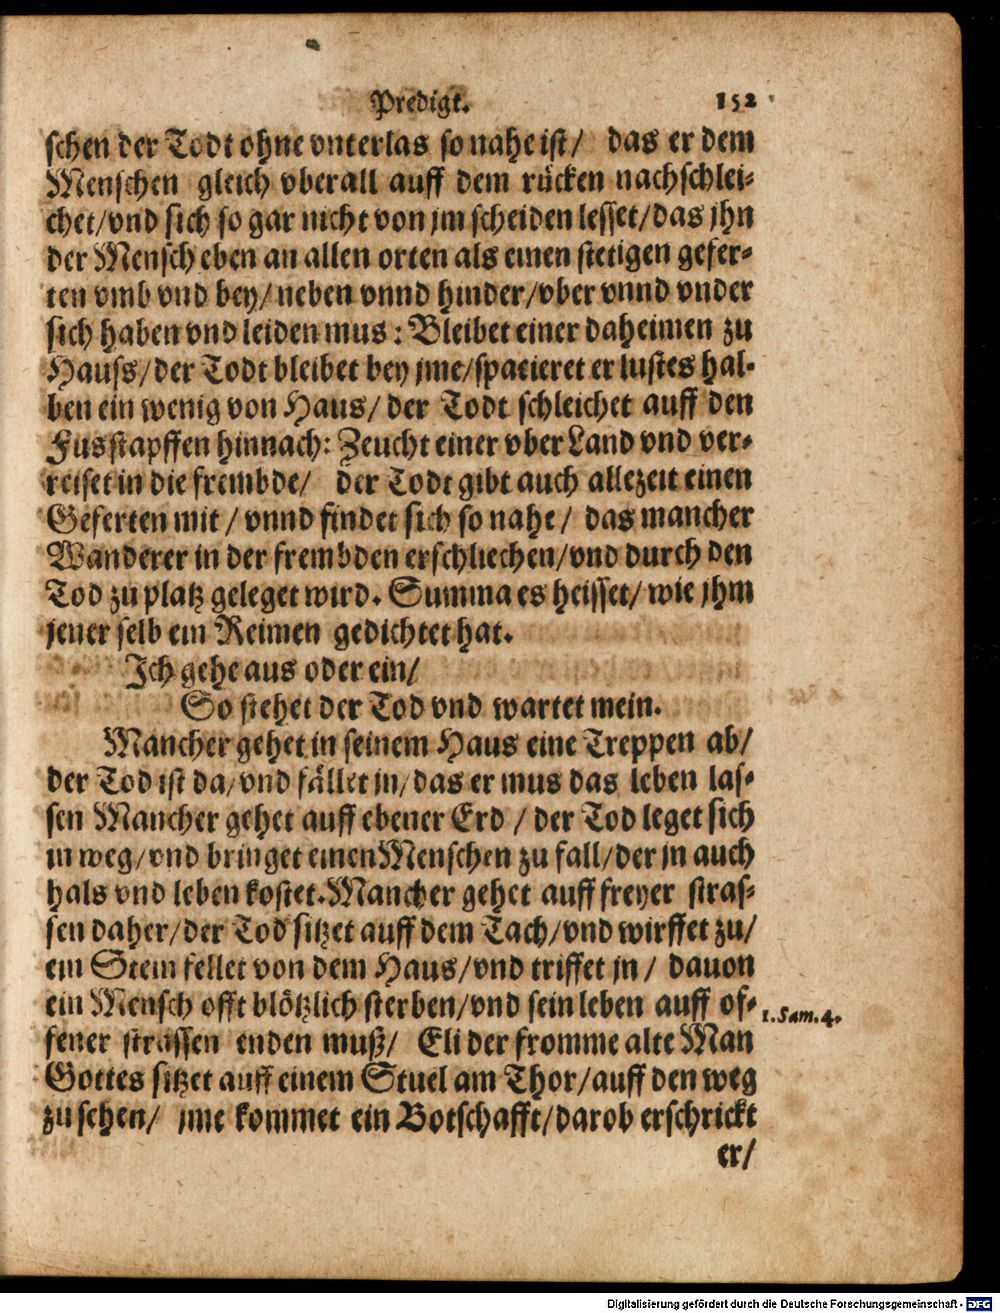 Predigt. 152
schen der Todt ohne vnterlas so nahe ist/ das er dem
Menschen gleich vberall auff dem rücken nachschlei-
chet/vnd sich so gar nicht von jm scheiden lesset/das jhn
der Mensch eben an allen orten als einen stetigen gefer-
ten vmb vnd bey/neben vnnd hinder/vber vnnd vnder
sich haben vnd leiden mus: Bleibet einer daheimen zu
Hauss/der Todt bleibet bey jme/spacieret er lustes hal-
ben ein wenig von Haus/der Todt schleichet auff den
Fusstapffen hinnach: Zeucht einer vber Land vnd ver-
reiset in die frembde/ der Todt gibt auch allezeit einen
Geferten mit/vnnd findet sich so nahe/ das mancher
Wanderer in der frembden erschliechen/vnd durch den
Tod zu platz geleget wird. Summa es heisset/wie jhm
jener selb ein Reimen gedichtet hat.
Ich gehe aus oder ein/
So stehet der Tod vnd wartet mein.
Mancher gehet in seinem Haus eine Treppen ab/
der Tod ist da/vnd fället jn/das er mus das leben las-
sen Mancher gehet auff ebener Erd/der Tod leget sich
in weg/vnd bringet einen Menschen zu fall/der jn auch
hals vnd leben kostet. Mancher gehet auff freyer stras-
sen daher/der Tod sitzet auff dem Tach/vnd wirffet zu/
ein Stein fellet von dem Haus/vnd triffet jn/ dauon
ein Mensch offt blötzlich sterben/vnd sein leben auff of-
fener strassen enden muß/ Eli der fromme alte Man
1. Sam. 4.
Gottes sitzet auff einem Stuel am Thor/auff den weg
zu sehen/ jme kommet ein Botschafft/darob erschrickt
er/
Digitalisierung gefördert durch die Deutsche Forschungsgemeinschaft - DFG